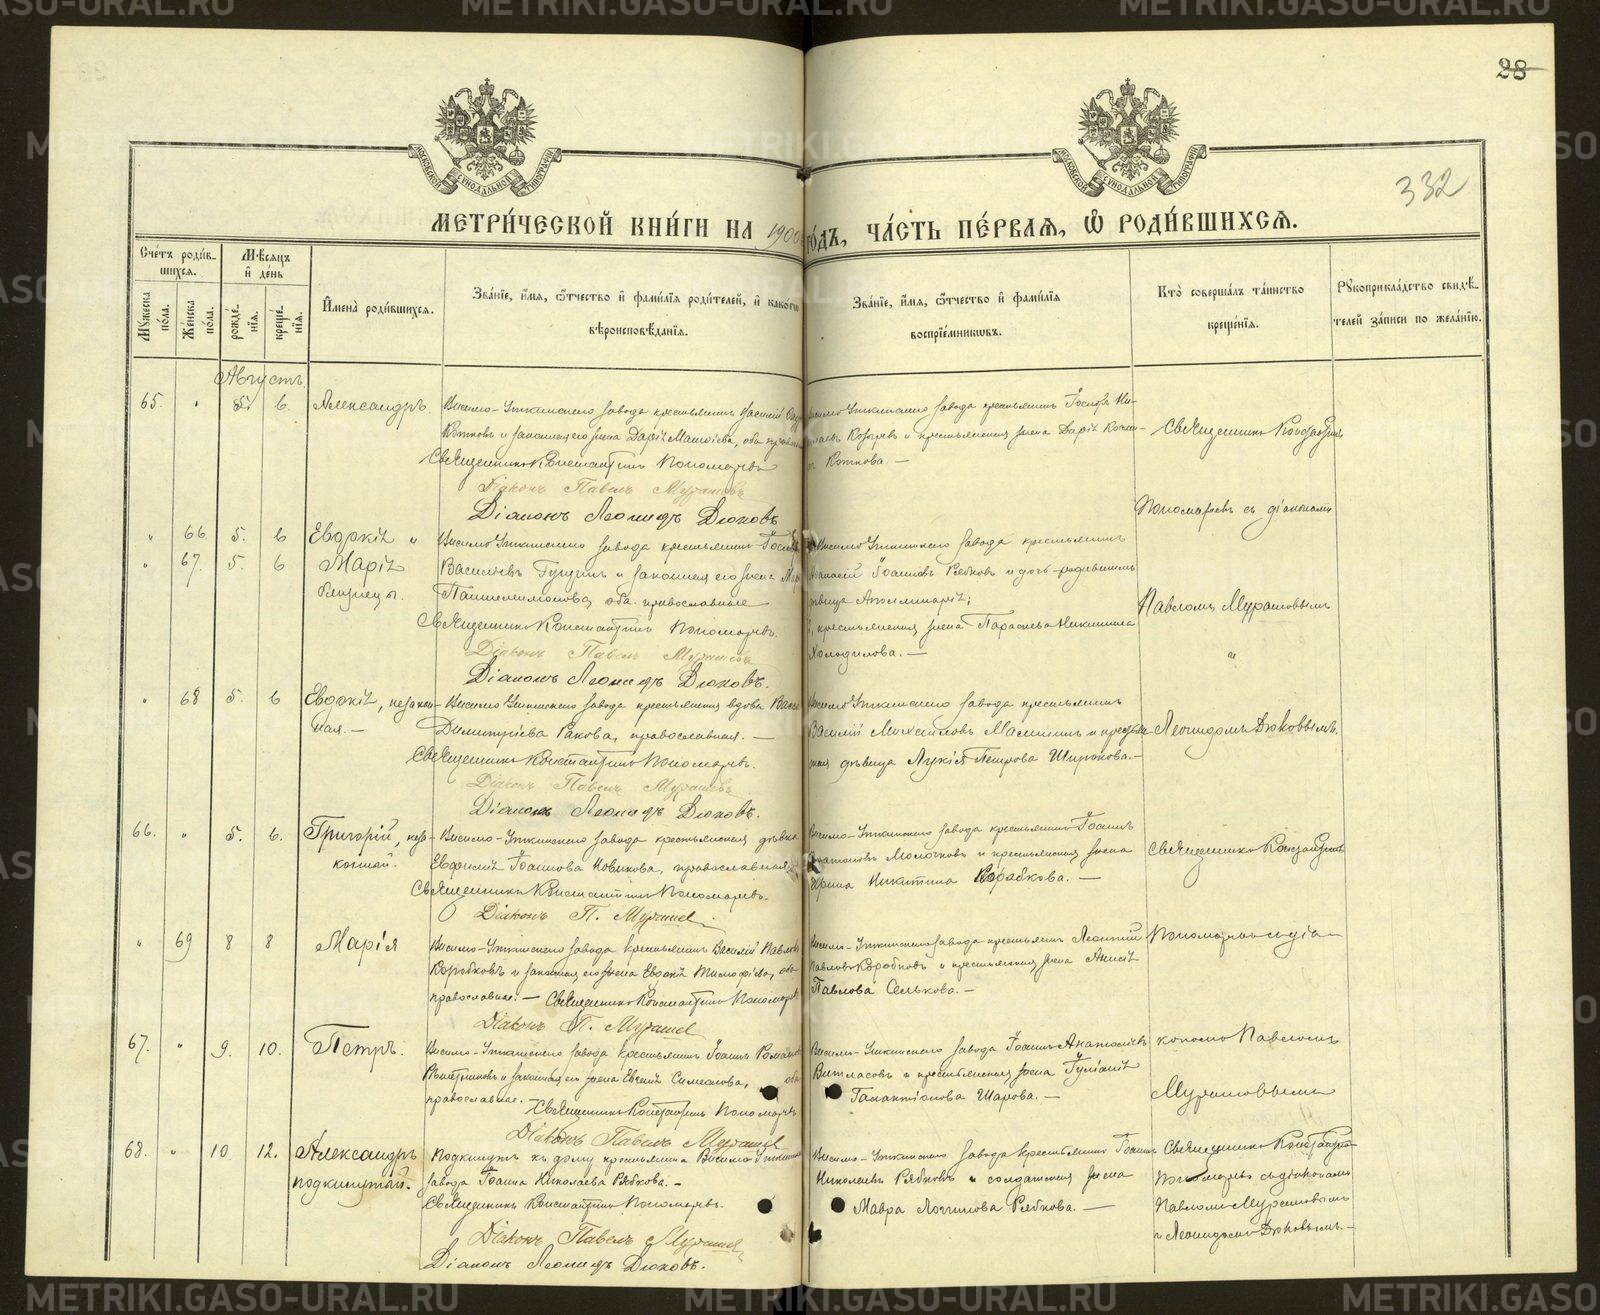 METRIKI.GASO-URAL.RU
28
332
МОСКОВСКОЙ СѴНОДАЛЬНОЙ ТИПОГРАФІИ
МОСКОВСКОЙ СѴНОДАЛЬНОЙ ТИПОГРАФІИ
МЕТРИ́ЧЕСКОЙ КНИ́ГИ НА 1900 ГО́ДЪ, ЧА́СТЬ ПЕ́РВАЯ, Ѡ РОДИ́ВШИХСЯ.
Сче́тъ роди́в-
шихся.
Мѣ́сяцъ
и де́нь
Мꙋ́жеска по́ла.
Же́нска по́ла.
рожде́нїя.
креще́нїя.
Имена̀ роди́вшихся.
Зва́нїе, и́мя, ѻ́тчество и фами́лїя роди́телей, и како́гѡ
вѣроисповѣ́данїя.
Зва́нїе, и́мя, ѻ́тчество и фами́лїя
воспрїе́мникѡвъ.
Кто̀ соверша́лъ та́инство
креще́нїя.
Рꙋкоприкла́дство свидѣ́-
телей за́писи по жела́нїю.
Августъ.
65. " 5. 6. Александръ.
Висимо-Уткинскаго завода крестьянинъ Василій
Котковъ и законная его жена Дарія Матвіева, оба
Священникъ Константинъ Пономаревъ
Діаконъ Павелъ Мурашовъ
Діаконъ Леонидъ Дюковъ
завода крестьянинъ
Козыревъ и крестьянская жена Дарія
Коткова. —
Священникъ Константинъ
Пономаревъ съ діаконами
" 66 5. 6 Евдокія и
" 67. 5. 6 Марія
близнецы.
Висимо-Уткинскаго завода крестьянинъ
Васильевъ и законная его жена
Пантелеимонова, оба православные
Священникъ Константинъ Пономаревъ.
Діаконъ Павелъ Мурашовъ
Діаконъ Леонидъ Дюковъ.
Висимо Уткинскаго завода крестьянинъ
Іоанновъ Рябковъ и дочь
дѣвица Аполлинарія;
крестьянская жена Параскева Никитина
Холодилова. —
Павломъ Мурашовымъ
и
" 68 5. 6 Евдокія, незакон-
ная. —
Висимо Уткинскаго завода крестьянская вдова
Димитріева Ракова, православная. —
Священникъ Константинъ Пономаревъ.
Діаконъ Павелъ Мурашовъ
Діаконъ Леонидъ Дюковъ.
Висимо Уткинскаго завода крестьянинъ
Василій Михайловъ и
дѣвица Лукія Петрова Широкова. —
Леонидомъ Дюковымъ.
66. " 5. 6. Григорій, неза-
конный.
Висимо-Уткинскаго завода крестьянская дѣвка
Евфимія Іоаннова Новикова, православная
Священникъ Константинъ Пономаревъ.
Діаконъ П. Мурашев
Висимо-Уткинскаго завода крестьянинъ Іоаннъ
Молочковъ и крестьянская жена
Ирина Никитина Корабкова. —
Священникъ Константинъ
" 69 8 8 Марія
Висимо-Уткинскаго завода крестьянинъ Василій Павловъ
Коробковъ и законная его жена Евдокія Тимофѣева, оба
православные. — Священникъ Константинъ Пономаревъ
Діаконъ П. Мурашев
Висимо-Уткинскаго завода крестьянинъ Леонтій
Павловъ Коробковъ и крестьянская жена Анисія
Павлова Селькова. —
Пономаревъ съ діа-
67. " 9. 10. Петръ.
Висимо-Уткинскаго завода крестьянинъ Іоаннъ Романовъ
и законная его жена Евгенія Симеонова, оба
православные. — Священникъ Константинъ Пономаревъ
Діаконъ Павелъ Мурашев
Висимо-Уткинскаго завода Іоаннъ Анатоліевъ
и крестьянская жена Іуліанія
Галактіонова Шарова. —
кономъ Павломъ
Мурашовымъ
68. " 10. 12. Александръ
подкинутый.
Подкинутъ къ дому крестьянина Висимо-Уткинскаго
завода Іоанна Николаева Рябкова. —
Священникъ Константинъ Пономаревъ.
Діаконъ Павелъ Мурашев
Діаконъ Леонидъ Дюковъ.
Висимо-Уткинскаго завода крестьянинъ Іоаннъ
Николаевъ Рябковъ и солдатская жена
Мавра Логгинова Рябкова. —
Священникъ Константинъ
Пономаревъ съ діаконами
Павломъ Мурашовымъ
и Леонидомъ Дюковымъ. —